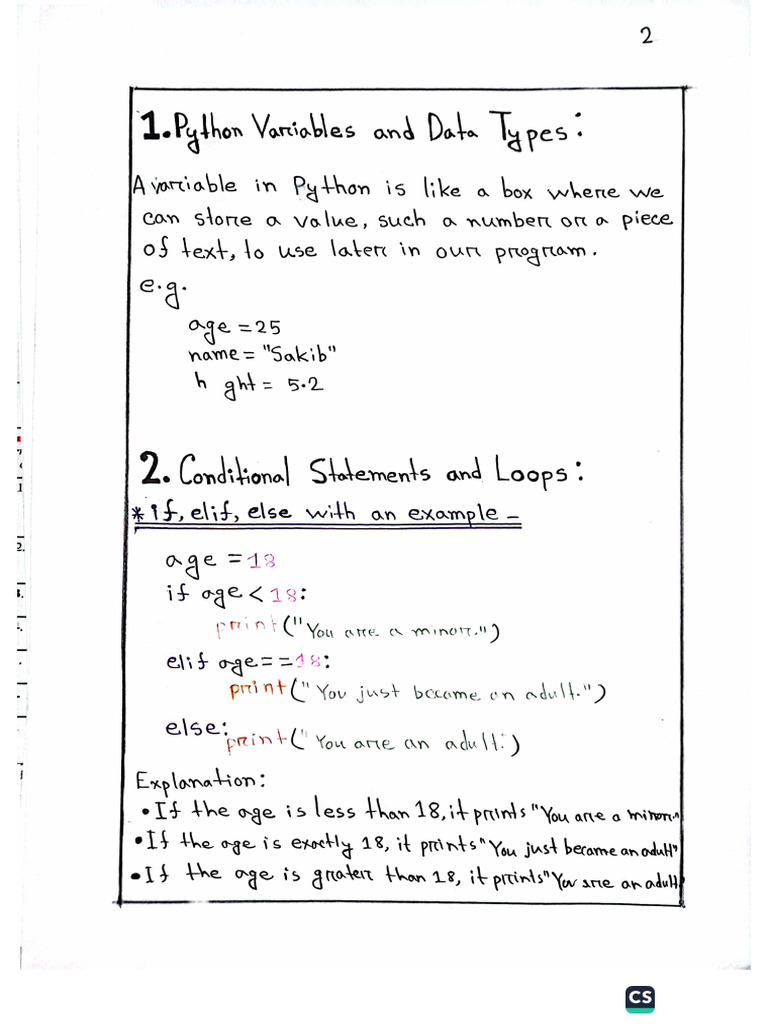 2
1. Python Variables and Data Types:
A variable in Python is like a box where we
can store a value, such a number or a piece
of text, to use later in our program.
e.g.
age = 25
name = "Sakib"
h ght = 5.2
2. Conditional Statements and Loops:
* if, elif, else with an example -
age = 18
if age < 18:
print("You are a minor.")
elif age == 18:
print("You just became an adult.")
else:
print("You are an adult.")
Explanation:
• If the age is less than 18, it prints "You are a minor."
• If the age is exactly 18, it prints "You just became an adult"
• If the age is greater than 18, it prints "You are an adult
CS